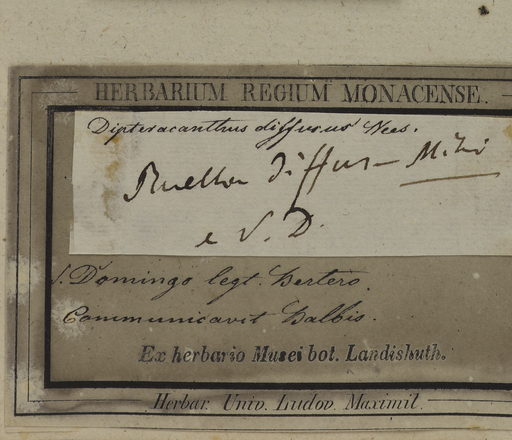 HERBARIUM REGIUM MONACENSE.
Dipteracanthus diffusus Nees.
Ruellia diffus– Mihi
e S. D.
S. Domingo legt. Bertero.
Communicavit Balbis.
Ex herbario Musei bot. Landishuth.
Herbar. Univ. Ludov. Maximil.